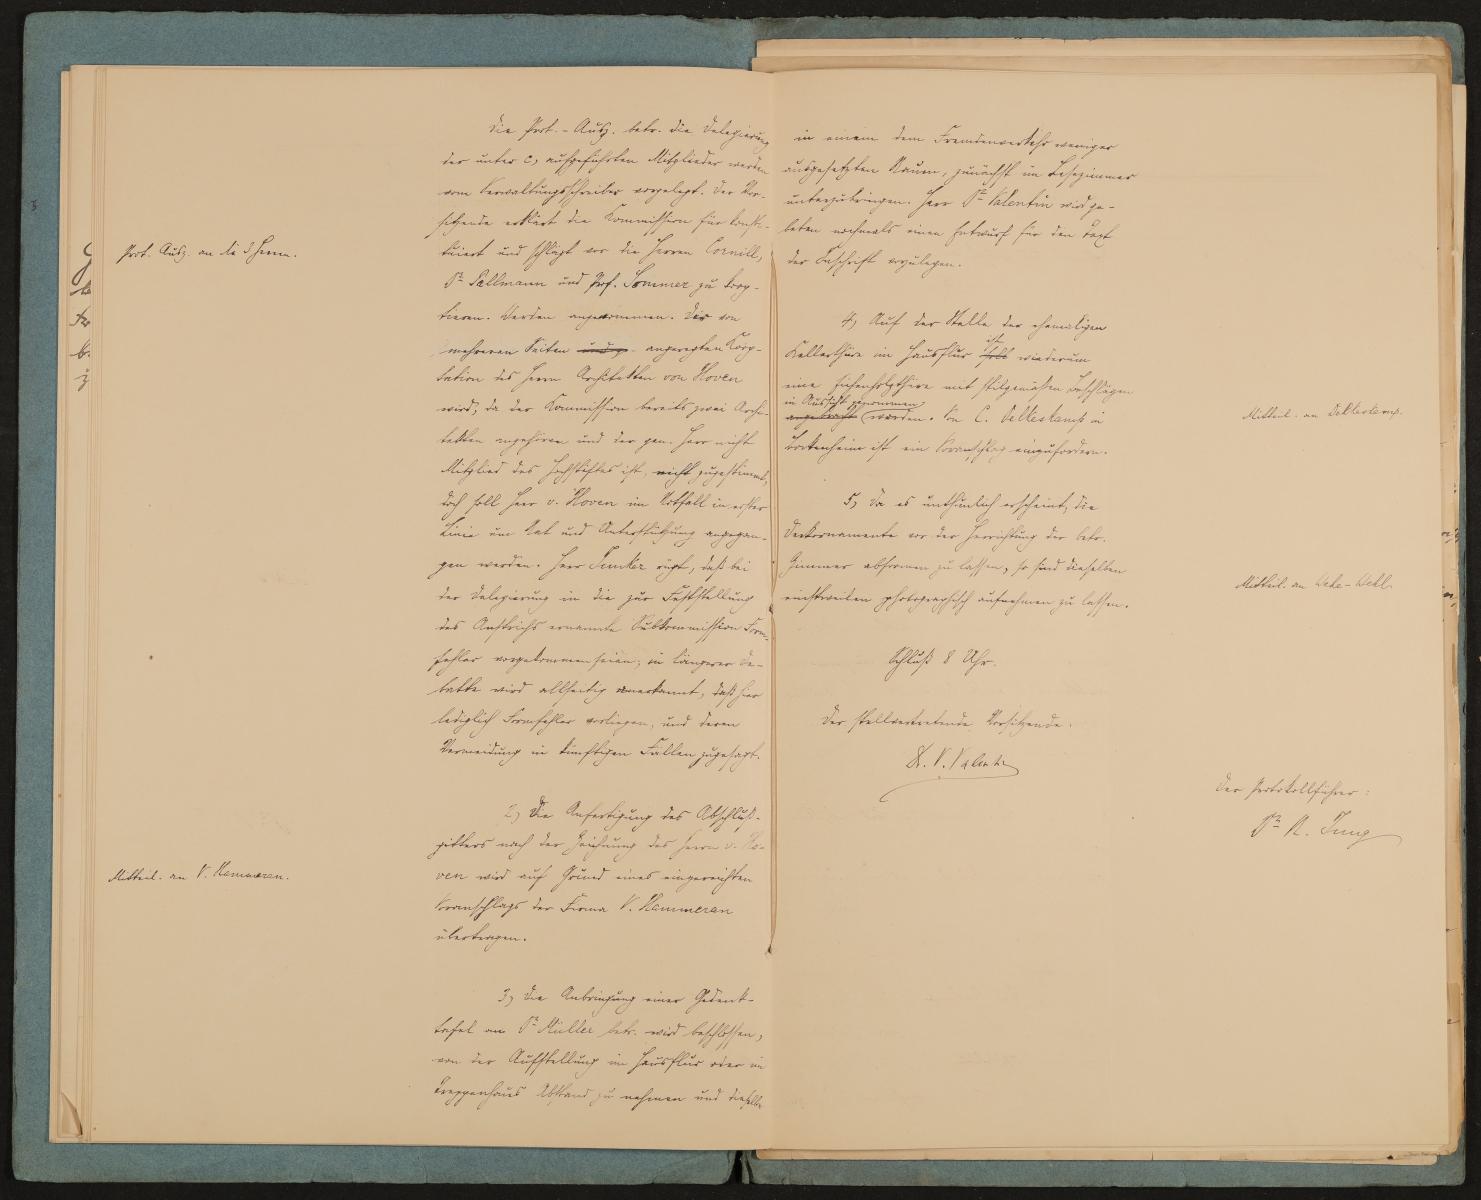 Die Prot.-Ausz. betr. die Delegierung
der unter c, aufgeführten Mitglieder werden
vom Verwaltungsschreiber vorgelegt. Der Vor-
sitzende erklärt die Kommission für konsti-
Prot. Ausz. an die 3 Herren.
tuiert und schlägt vor die Herren Cornill,
Dr. Pallmann und Prof. Sommer zu koop-
tieren. Werden angenommen. Der von
mehreren Seiten angeregten Koop-
tation des Herrn Architekten von Hoven
wird, da der Kommission bereits zwei Archi-
tekten angehören und der gen. Herr nicht
Mitglied des Hochstiftes ist, nicht zugestimmt,
doch soll Herr v. Hoven im Notfall in erster
Linie um Rat und Unterstützung angegan-
gen werden. Herr Junker rügt, daß bei
der Delegierung in die zur Feststellung
des Anstrichs ernannte Subkommission Form-
fehler vorgekommen seien; in längerer De-
batte wird allseitig anerkannt, daß hier
lediglich Formfehler vorliegen, und deren
Vermeidung in künftigen Fällen zugesagt.
2, Die Anfertigung des Abschluß-
gitters nach der Zeichnung des Herrn v. Ho-
Mitteil. an V. Hammeran.
ven wird auf Grund eines eingereichten
Voranschlags der Firma V. Hammeran
übertragen.
3, Die Anbringung einer Gedenk-
tafel an Dr. Müller betr. wird beschlossen,
von der Aufstellung im Hausflur oder im
Treppenhaus Abstand zu nehmen und dieselbe
in einem dem Fremdenverkehr weniger
ausgesetzten Raum, zunächst im Lesezimmer
unterzubringen. Herr Dr. Valentin wird ge-
beten nochmals einen Entwurf für den Text
der Inschrift vorzulegen.
4, Auf der Stelle der ehemaligen
Kellerthüre im Hausflur ist soll wiederum
eine Eichenholzthüre mit stilgemäßen Beschlägen
in Aussicht genommen
angebracht worden. Von C. Velteskamp in
Mitteil. an Velteskamp.
Bockenheim ist ein Voranschlag einzufordern.
5, Da es unthunlich erscheint, die
Deckornamente vor der Herrichtung der betr.
Zimmer abformen zu lassen, so sind dieselben
Mitteil. an
einstweilen photographisch aufnehmen zu lassen.
Schluß 8 Uhr.
Der stellvertretende Vorsitzende.
Dr. V. Valentin
Der Protokollführer:
Dr. R. Jung